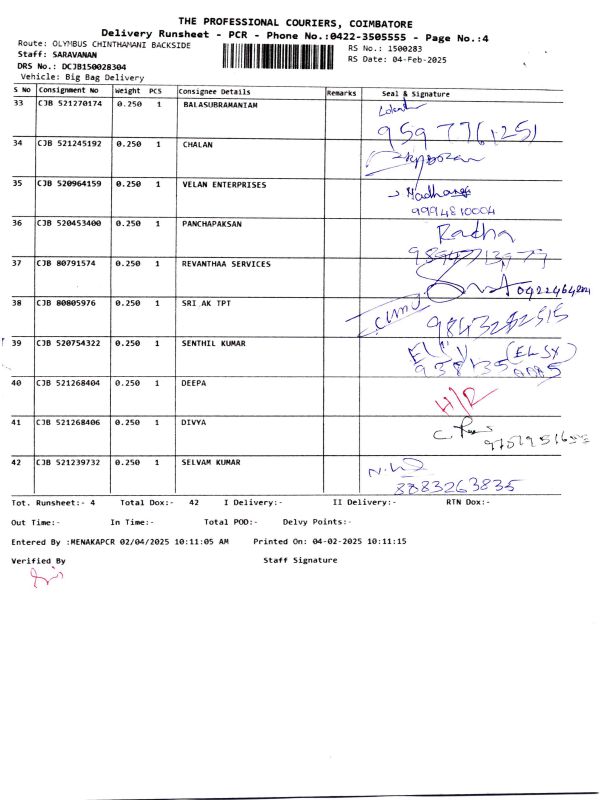 THE PROFESSIONAL COURIERS, COIMBATORE
Delivery Runsheet - PCR - Phone No.:0422-3505555 - Page No.:4
Route: OLYMBUS CHINTHAMANI BACKSIDE
RS No.: 1500283
Staff: SARAVANAN
RS Date: 04-Feb-2025
DRS No.: DCJB150028304
Vehicle: Big Bag Delivery
S No Consignment No Weight PCS Consignee Details Remarks Seal & Signature
33 CJB 521270174 0.250 1 BALASUBRAMANIAM
34 CJB 521245192 0.250 1 CHALAN
35 CJB 520964159 0.250 1 VELAN ENTERPRISES
9994810004
36 CJB 520453400 0.250 1 PANCHAPAKSAN Radha
37 CJB 80791574 0.250 1 REVANTHAA SERVICES
38 CJB 80805976 0.250 1 SRI.AK TPT
39 CJB 520754322 0.250 1 SENTHIL KUMAR
40 CJB 521268404 0.250 1 DEEPA H/R
41 CJB 521268406 0.250 1 DIVYA
42 CJB 521239732 0.250 1 SELVAM KUMAR
8883263835
Tot. Runsheet:- 4 Total Dox:- 42 I Delivery:- II Delivery:- RTN Dox:-
Out Time:- In Time:- Total POD:- Delvy Points:-
Entered By :MENAKAPCR 02/04/2025 10:11:05 AM Printed On: 04-02-2025 10:11:15
Verified By Staff Signature